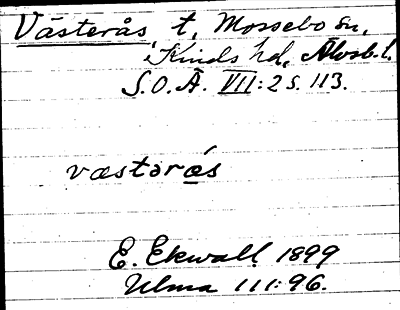 Västerås t, Mossebo sn,
Kinds hd, Älvsb. l.
S.O.Ä. VII:2 s. 113.
væstərás
E. Ekwall 1899
Ulma 111:96.